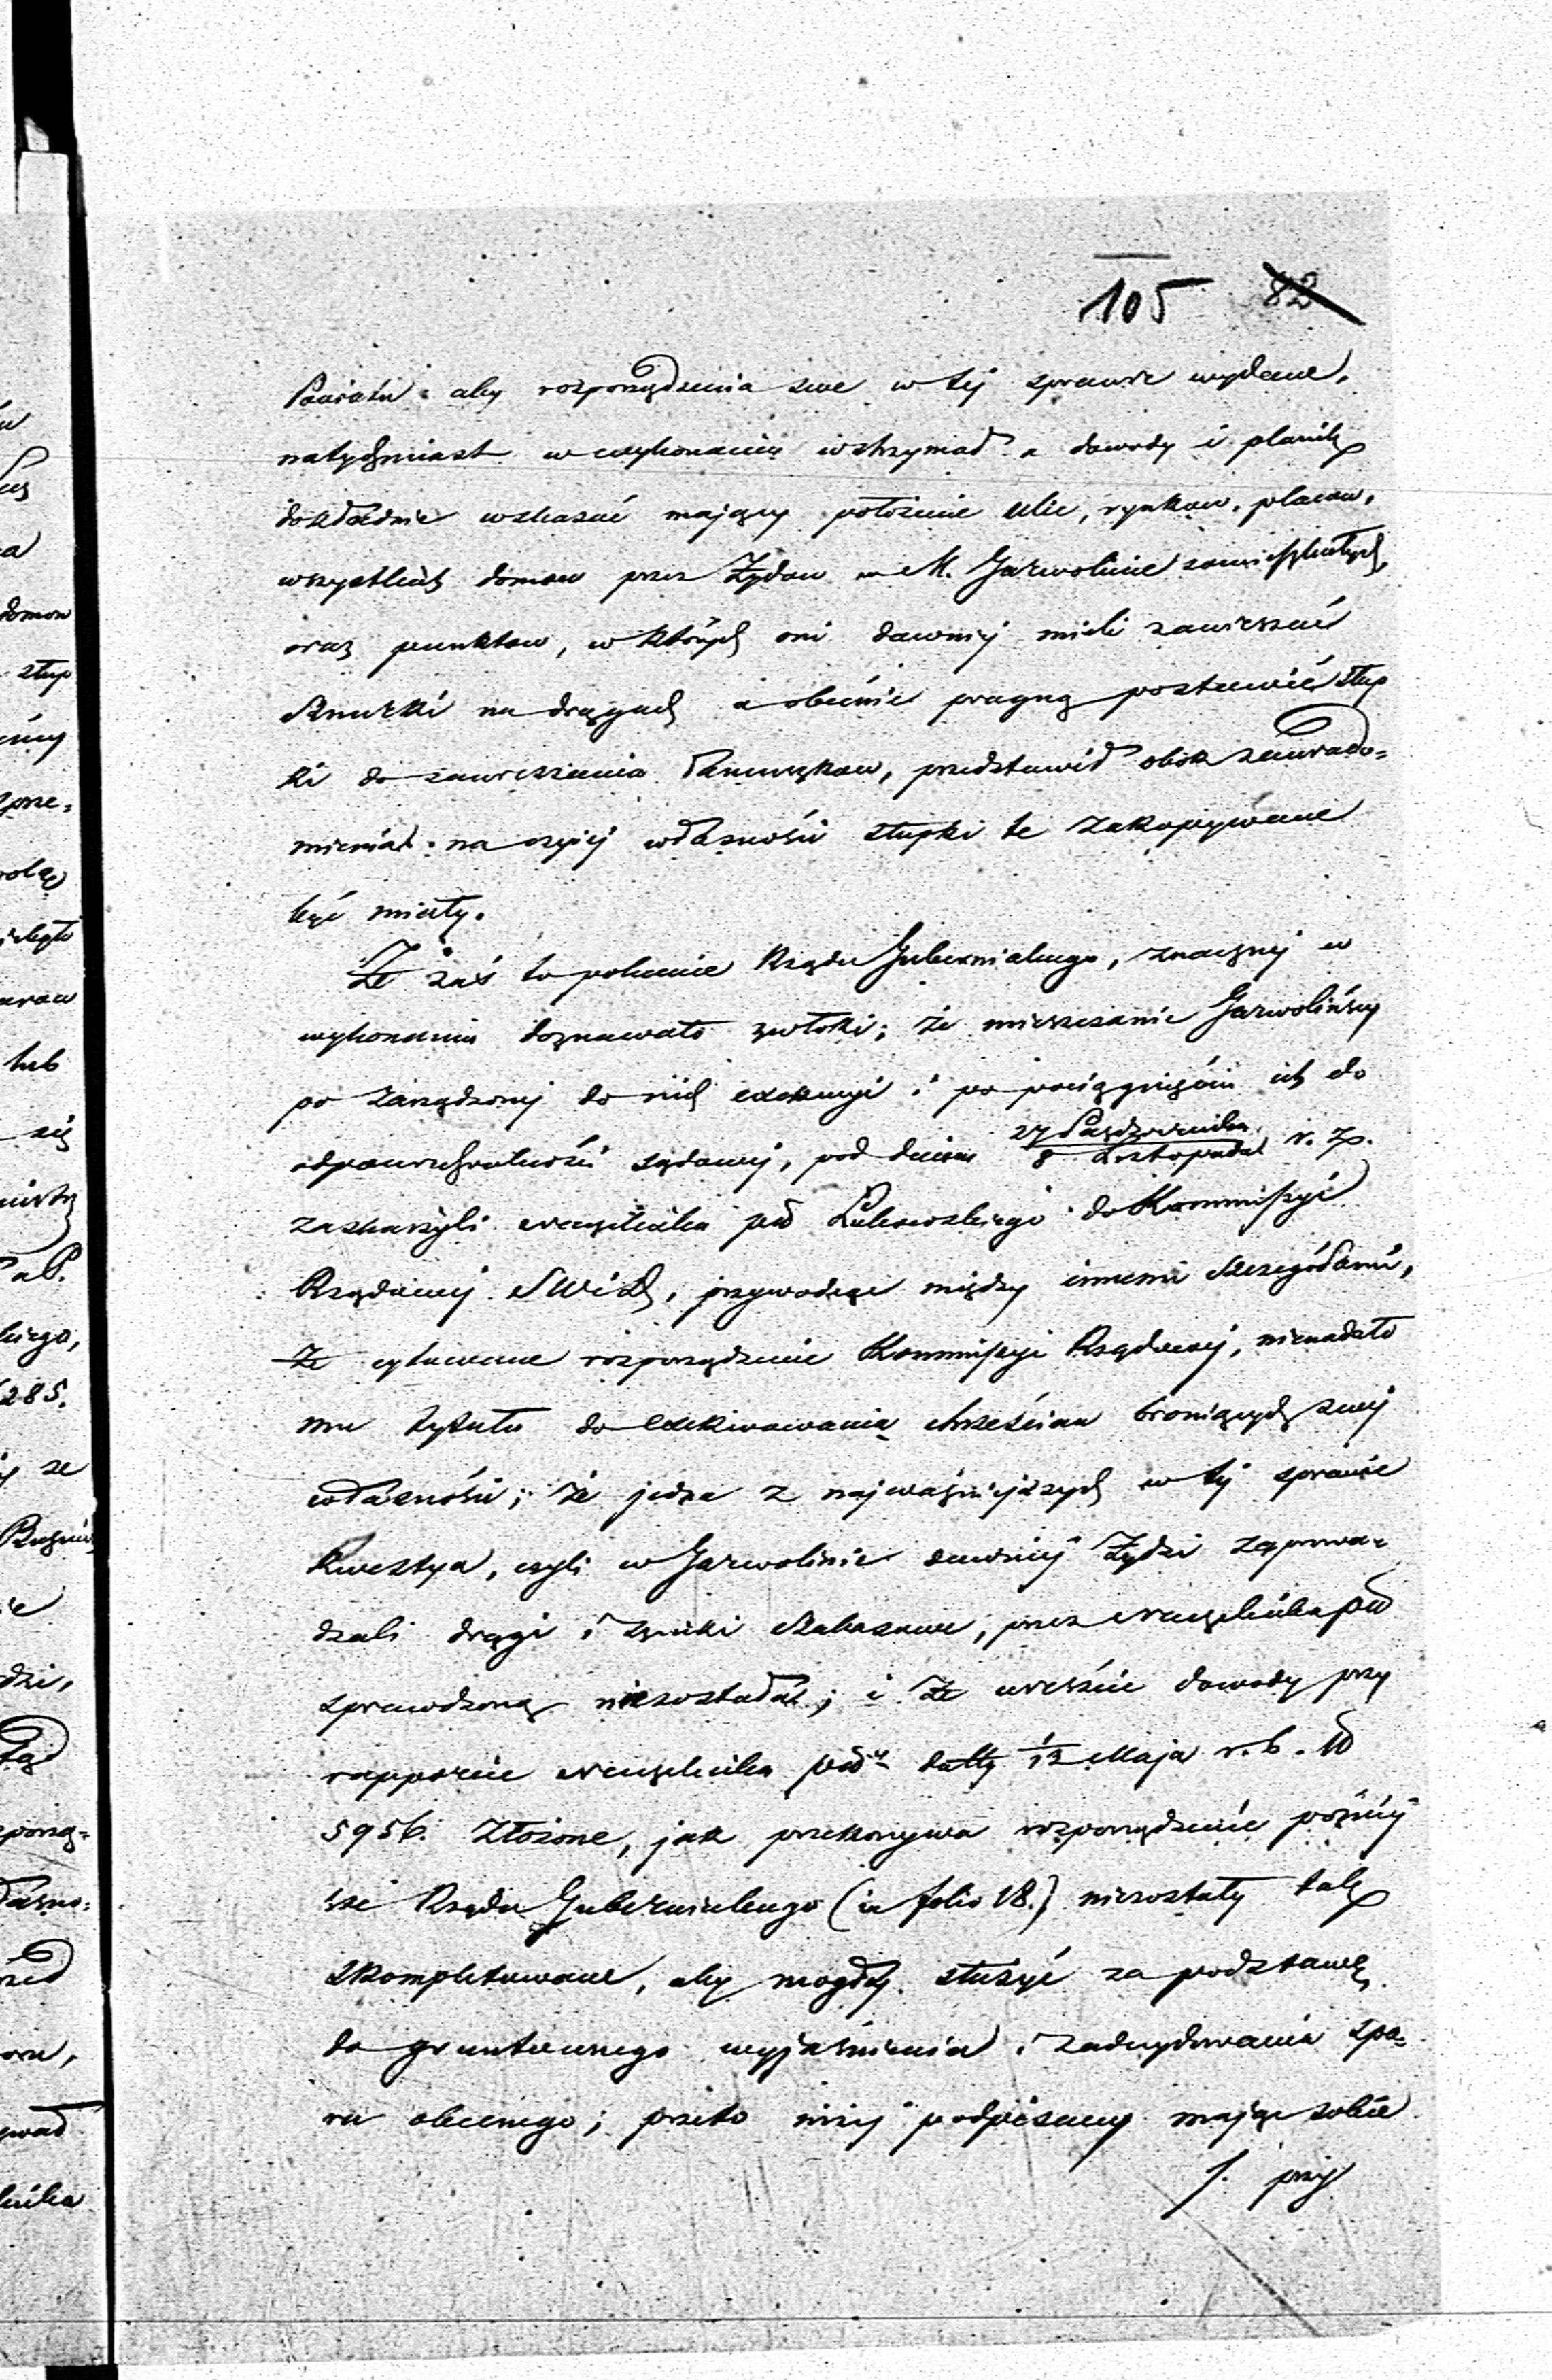 105 82
Powiatu: aby rozporządzenia swe w tej sprawie wydane,
natychmiast w wykonaniu wstrzymał a dowody i planik
dokładnie wskazać mający położenie ulic, rynkow, placow,
wszystkich domow przez Żydow w M. Garwolinie zamieszkałych,
oraz punktow, w których oni dawniej mieli zawieszać
sznurki na drągach a obecnie pragną postawić słup
ki do zawieszenia łancuszkow, przedstawił obok zawiado-
mienia: na czyjej własności słupki te zakopywane
być miały.
Że zaś to polecenie Rządu Gubernialnego, znacznej w
wykonaniu doznawało zwłoki; że mieszczanie Garwolińscy
po zarządzonej do nich exekucyi i po pociągnięciu ich do
odpowiedzialności sądowej, pod dniem 27 Października
8 Listopada r. z.
zaskarżyli Naczelnika pow Łukowskiego do Kommissyi
Rządowej SWiD, przywodząc między innemi szczegółami,
że cytowane rozporządzenie Kommissyi Rządowej, nienadało
mu tytułu do exekwowania chrześcian broniących swej
własności; że jedna z najważniejszych w tej sprawie
kwestya, czyli w Garwolinie dawniej Żydzi zaprowa-
dzali drągi i sznurki szabasowe, przez Naczelnika pow
sprawdzoną niezostała; i że wreszcie dowody przy
rapporcie Naczelnika pow daty 1/13 Maja r. b. No
5956. złożone, jak przekonywa rozporządzenie poźniej
sze Rządu Gubernialnego (in folio 18.) niezostały tak
skompletowane, aby mogły służyć za podstawę
do gruntownego wyjaśnienia i zadecydowania spo-
ru obecnego; przeto niżej podpisany mając sobie
/. przy